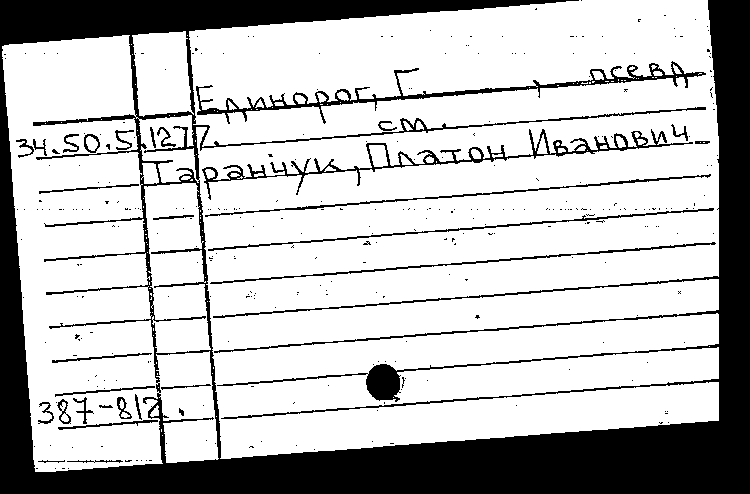 Единорог, Г. , псевд
34.50.5.1277. см.
Таранчук, Платон Иванович
387-812.